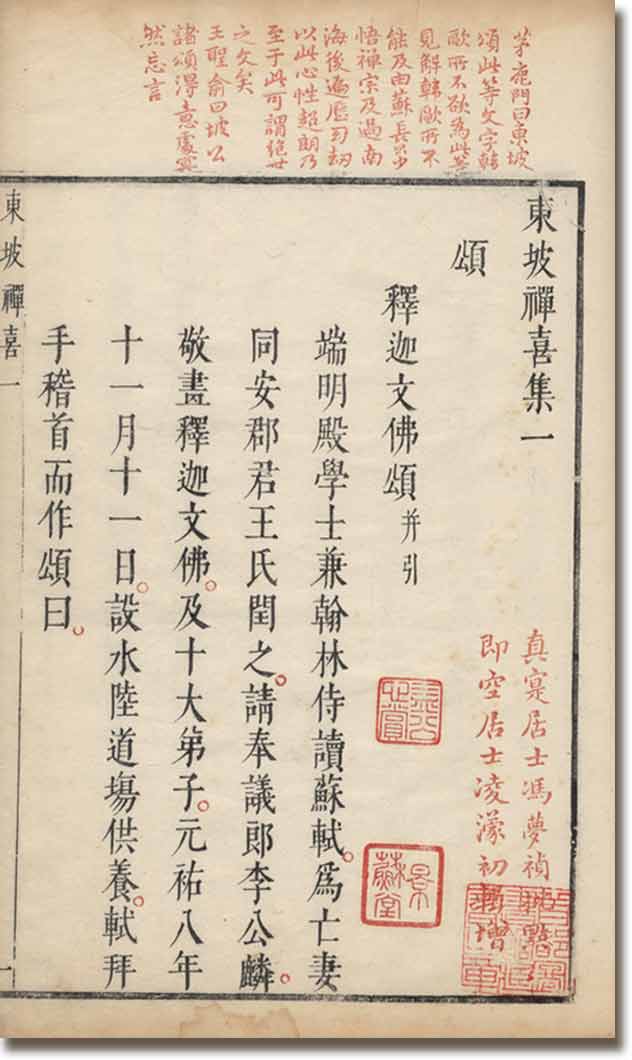 茅鹿門曰東坡
頌此等文字韓
歐所不欲為此等
見解韓歐所不
能及由蘇長公少
悟禪宗及過南
海後遍歷幻劫
以此心性超朗乃
至于此可謂絕世
之文矣
王聖俞曰坡公
諸頌得意處寔
然忘言
東坡禪喜集一
真寔居士馮夢禎點
即空居士凌濛初增
頌
釋迦文佛頌并引
端明殿學士兼翰林侍讀蘇軾。為亡妻
同安郡君王氏閏之。請奉議郎李公麟。
敬畫釋迦文佛。及十大弟子。元祐八年
十一月十一日。設水陸道塲供養。軾拜
手稽首而作頌曰。
東坡禪喜一
一